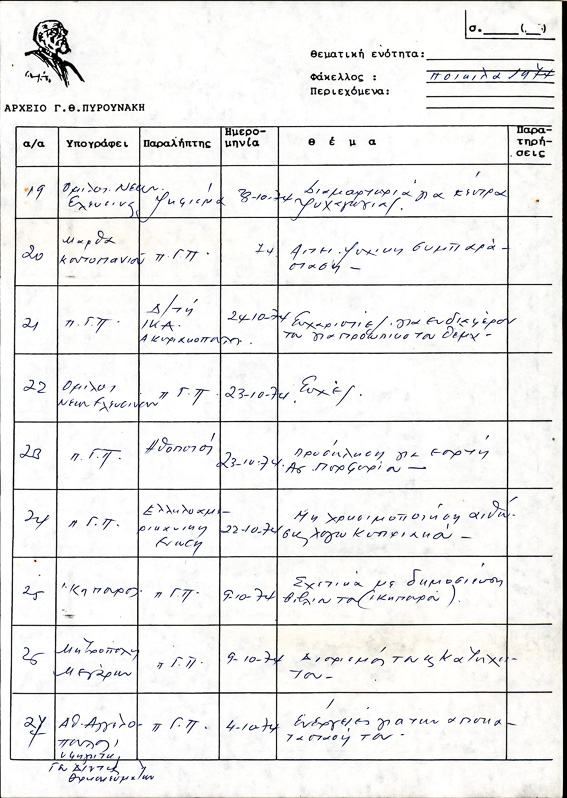 σ.______(__.)
Θεματική ενότητα:
Φάκελλος : ποικίλα 1974
Περιεχόμενα:
ΑΡΧΕΙΟ Γ.Θ.ΠΥΡΟΥΝΑΚΗ
α/α Υπογράφει Παραλήπτης Ημερο-μηνία θ έ μ α Παρα-τηρή-σεις
19 Ομιλος Νεων
Ελευσινας 8-10-74 Διαμαρτυρία για κέντρα
ψυχαγωγίας.
20 Μαρθα
π Γ.Π. 74 ψυχικη συμπαρά-
σταση –
21 π.Γ.Π. Δ/τή
ΙΚΑ 24-10-74 Ευχαριστίες για ενδιαφέρον
του για προσωπικο του θέμα -
22 Ομιλος
Νεων Ελευσινας π Γ.Π. 23-10-74 Ευχές.
23 π.Γ.Π. Ηθοποιοί 23-10-74 Προσκληση για εορτή
Αγ. Πορφυρίου –
24 π Γ.Π. Ελληνοαμε-
ρικανικη
Ενωση 22-10-74 Μη χρησιμοποίηση αιθού-
σας λογω Κυπριακού –
25 π Γ.Π. 9-10-74 Σχετικά με δημοσιευση
βιβλίου του
26 Μητροπολη
Μεγάρων π Γ.Π. 9-10-74 Διορισμός του ως κατηχη-
του –
27 Αθ. Αγγελο-
πουλος π Γ.Π. 4-10-74 Ενέργειες για την αποκα-
τασταση του -